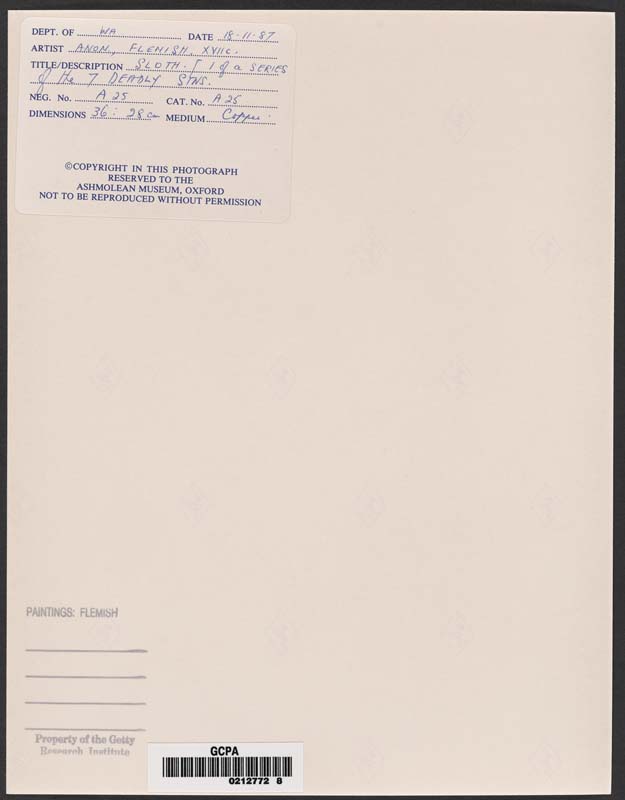 DEPT. OF WA DATE 18-11-87
ARTIST ANON, FLEMISH, XVIIc.
TITLE/DESCRIPTION SLOTH. [ 1 of a SERIES
of the 7 DEADLY SINS.
NEG. No. A 25 CAT. No. A 25
DIMENSIONS 36 : 28 cm MEDIUM Copper.
©COPYRIGHT IN THIS PHOTOGRAPH
RESERVED TO THE
ASHMOLEAN MUSEUM, OXFORD
NOT TO BE REPRODUCED WITHOUT PERMISSION
PAINTINGS: FLEMISH
Property of the Getty
Research Institute
GCPA
0212772 8